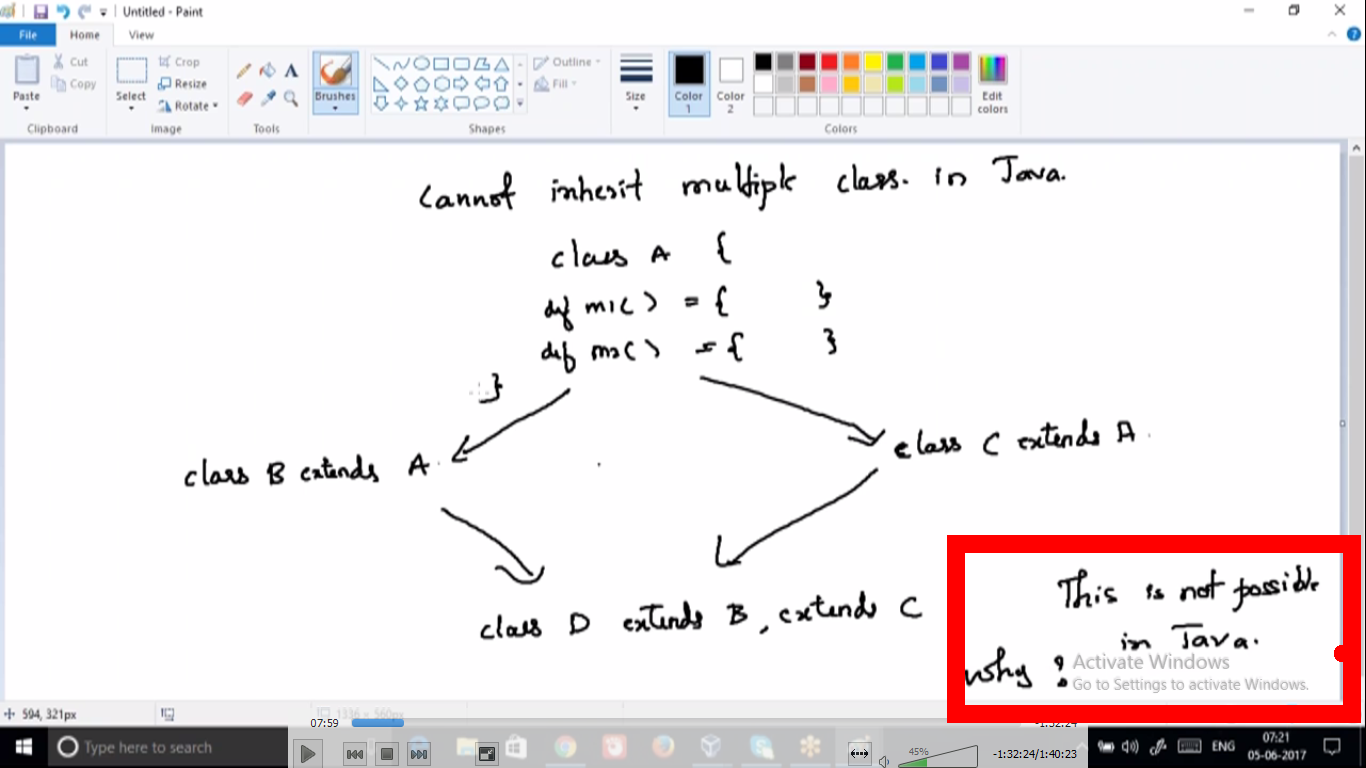 Untitled - Paint
File Home View
Paste Cut Copy Clipboard
Select Crop Resize Rotate Image
Tools
Brushes
Shapes
Outline
Fill
Size
Color 1 Color 2
Edit colors
Colors
Cannot inherit multiple class. in Java.
class A {
def m1( ) = { }
def m2( ) = { }
}
class B extends A.
class C extends A.
class D extends B, extends C
This is not possible
in Java.
why ?
Activate Windows
Go to Settings to activate Windows.
594, 321px
1336 × 560px
07:59
-1:32:24
Type here to search
45%
-1:32:24/1:40:23
ENG
07:21
05-06-2017